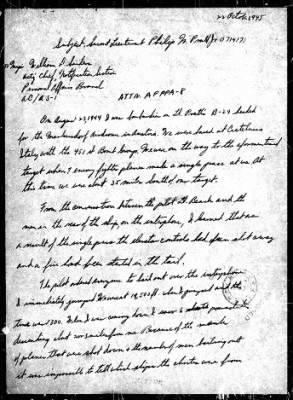 22 October 1945
Subject: Second Lieutenant Philip M. Pratt
To Major William
Chief, Notification Section
Personal Affairs Branch
AC/AS-1
ATTN: AFPPA-8
On August 23, 1944 I was bombardier on Lt. Pratt's B-24 headed
for the Markersdorf Airdrome in Austria. We were based at Castelluccio
Italy with the 451 st Bomb Group. We were on the way to the aforementioned
target when enemy fighter planes made a single pass at us. At
this time we were about 35 miles south of our target.
From the conversation between the pilot Lt. Beach and the
man in the rear of the ship, on the interphone, I learned that as
a result of the single pass the elevator controls had been shot away
and a fire had been started in the tail.
The pilot ordered everyone to bail out over the interphone
I immediately jumped. It was at when I jumped and the
time was 1200. When I was coming down I saw
descending about miles from me. Because of the number
of planes that were shot down & the number of men bailing out
it was impossible to tell which ships the chutes were from